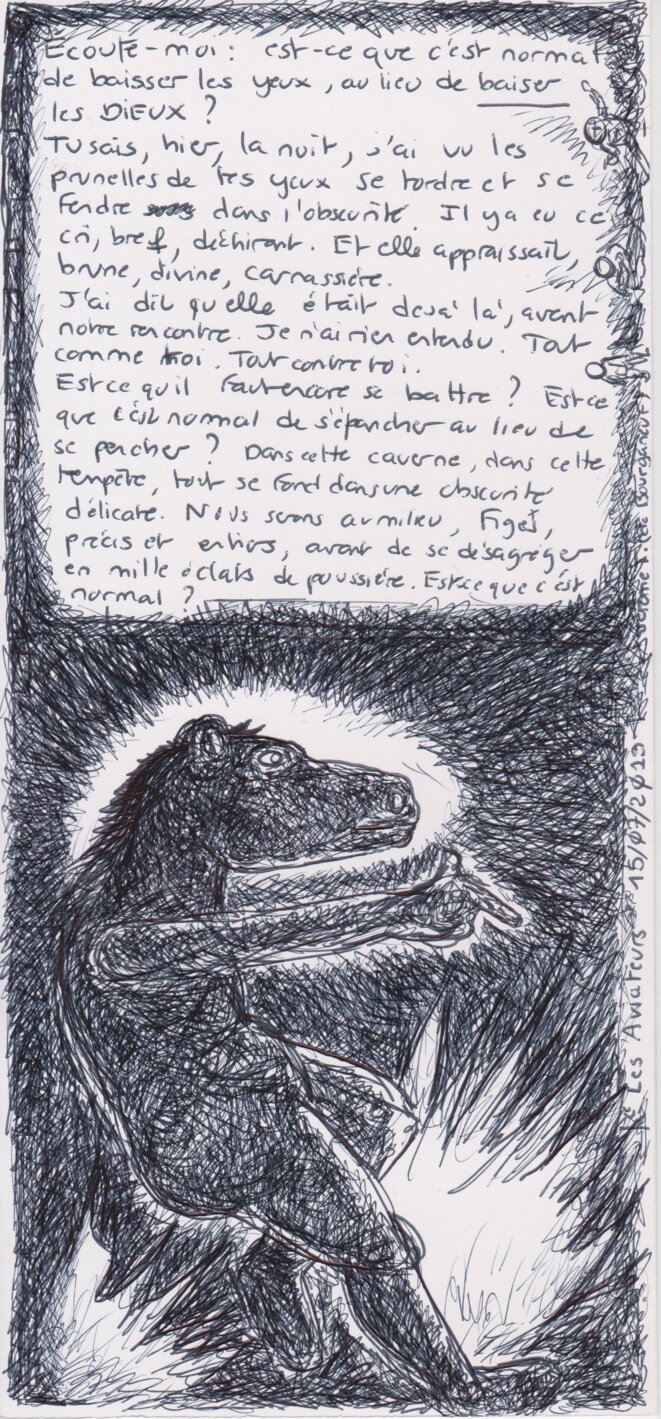 Écoute-moi : est-ce que c'est normal
de baisser les yeux, au lieu de baiser
les DIEUX ?
Tu sais, hier, la nuit, j'ai vu les
prunelles de tes yeux se tordre et se
fendre dans l'obscurité. Il y a eu ce
cri, bref, déchirant. Et elle appraissait,
brune, divine, carnassière.
J'ai dit qu'elle était dejà là, avant
notre rencontre. Je n'ai rien entendu. Tout
comme toi. Tout contre toi.
Est ce qu'il faut encore se battre ? Est ce
que c'est normal de s'épancher au lieu de
se percher ? Dans cette caverne, dans cette
tempête, tout se fond dans une obscurité
délicate. Nous serons au milieu, figés,
précis et entiers, avant de se désagréger
en mille éclats de poussière. Est ce que c'est
normal ?
Les Aviateurs 15/07/2019